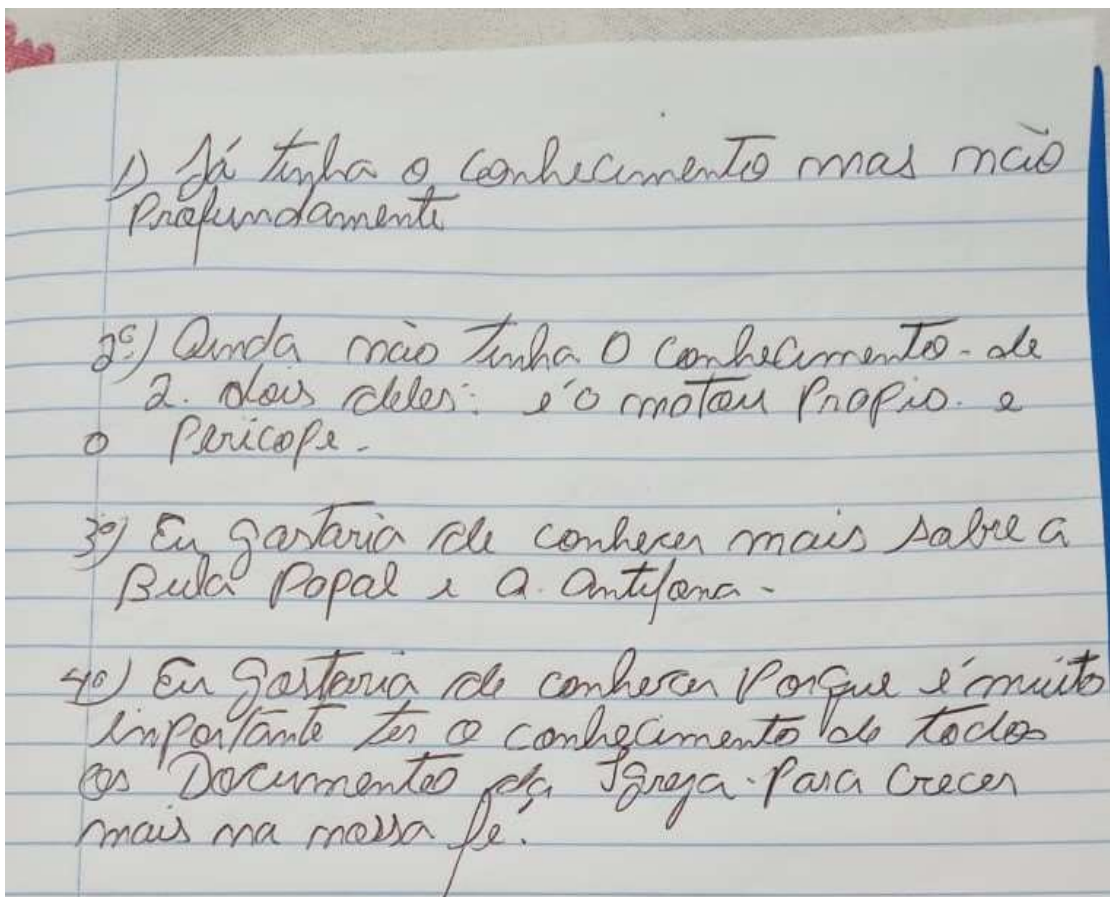 1) Já tinha o conhecimento mas não
Profundamente
2º) Ainda não tinha O conhecimento - de
2. dois deles: é o motau Propio. e
o Pericope.
3º) Eu gostaria de conhecer mais sobre a
Bula Papal e a. antifona-
4º) Eu gostaria de conhecer Porque é muito
importante ter o conhecimento de todos
os Documentos da Igreja. Para crecer
mais na nossa fé.